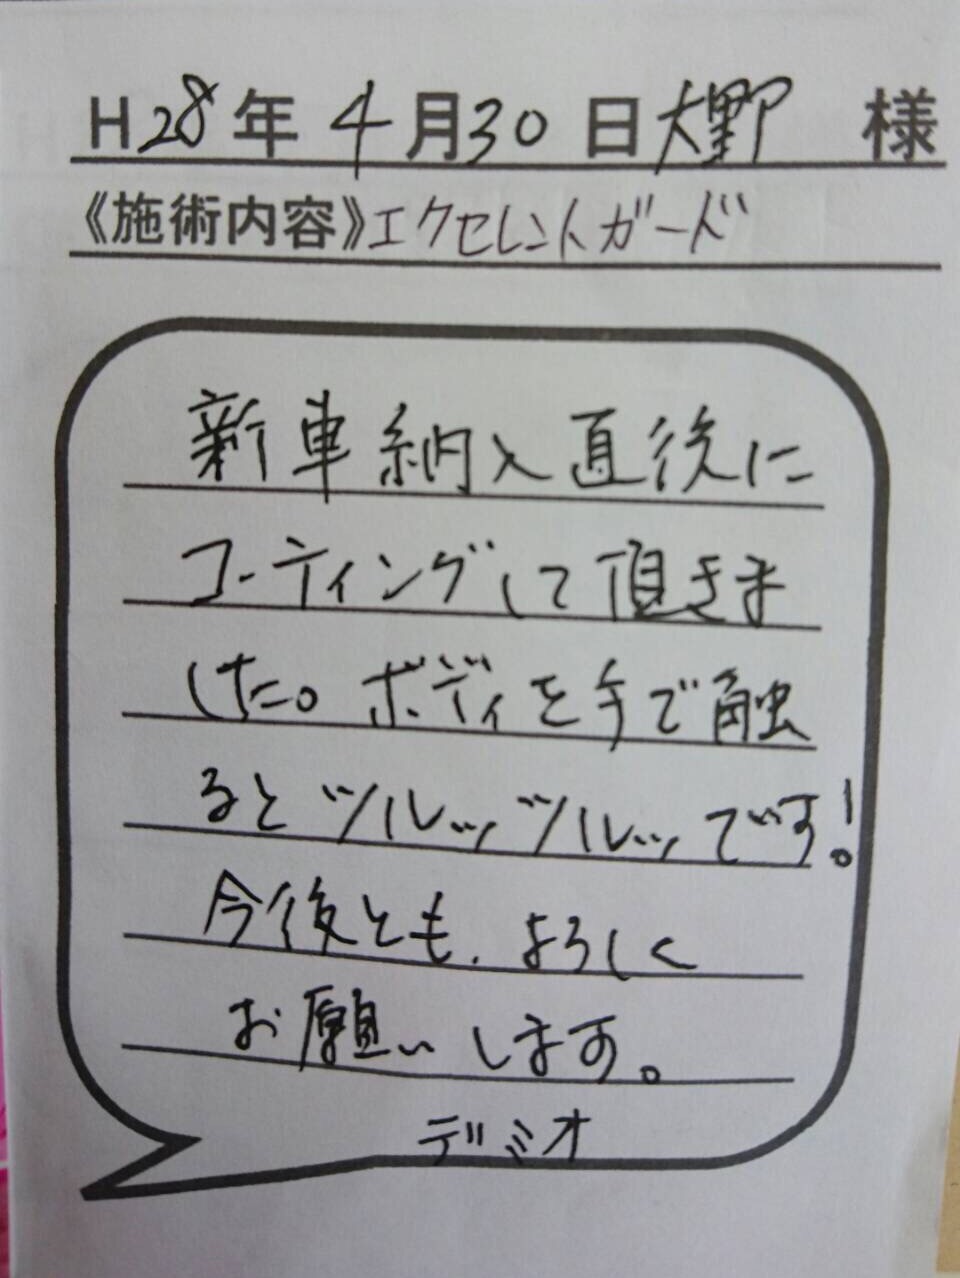 H28年4月30日大野 様
《施術内容》エクセレントガード
新車納入直後に
コーティングして頂きま
した。ボディを手で触
るとツルッツルッです!
今後とも、よろしく
お願いします。
デミオ